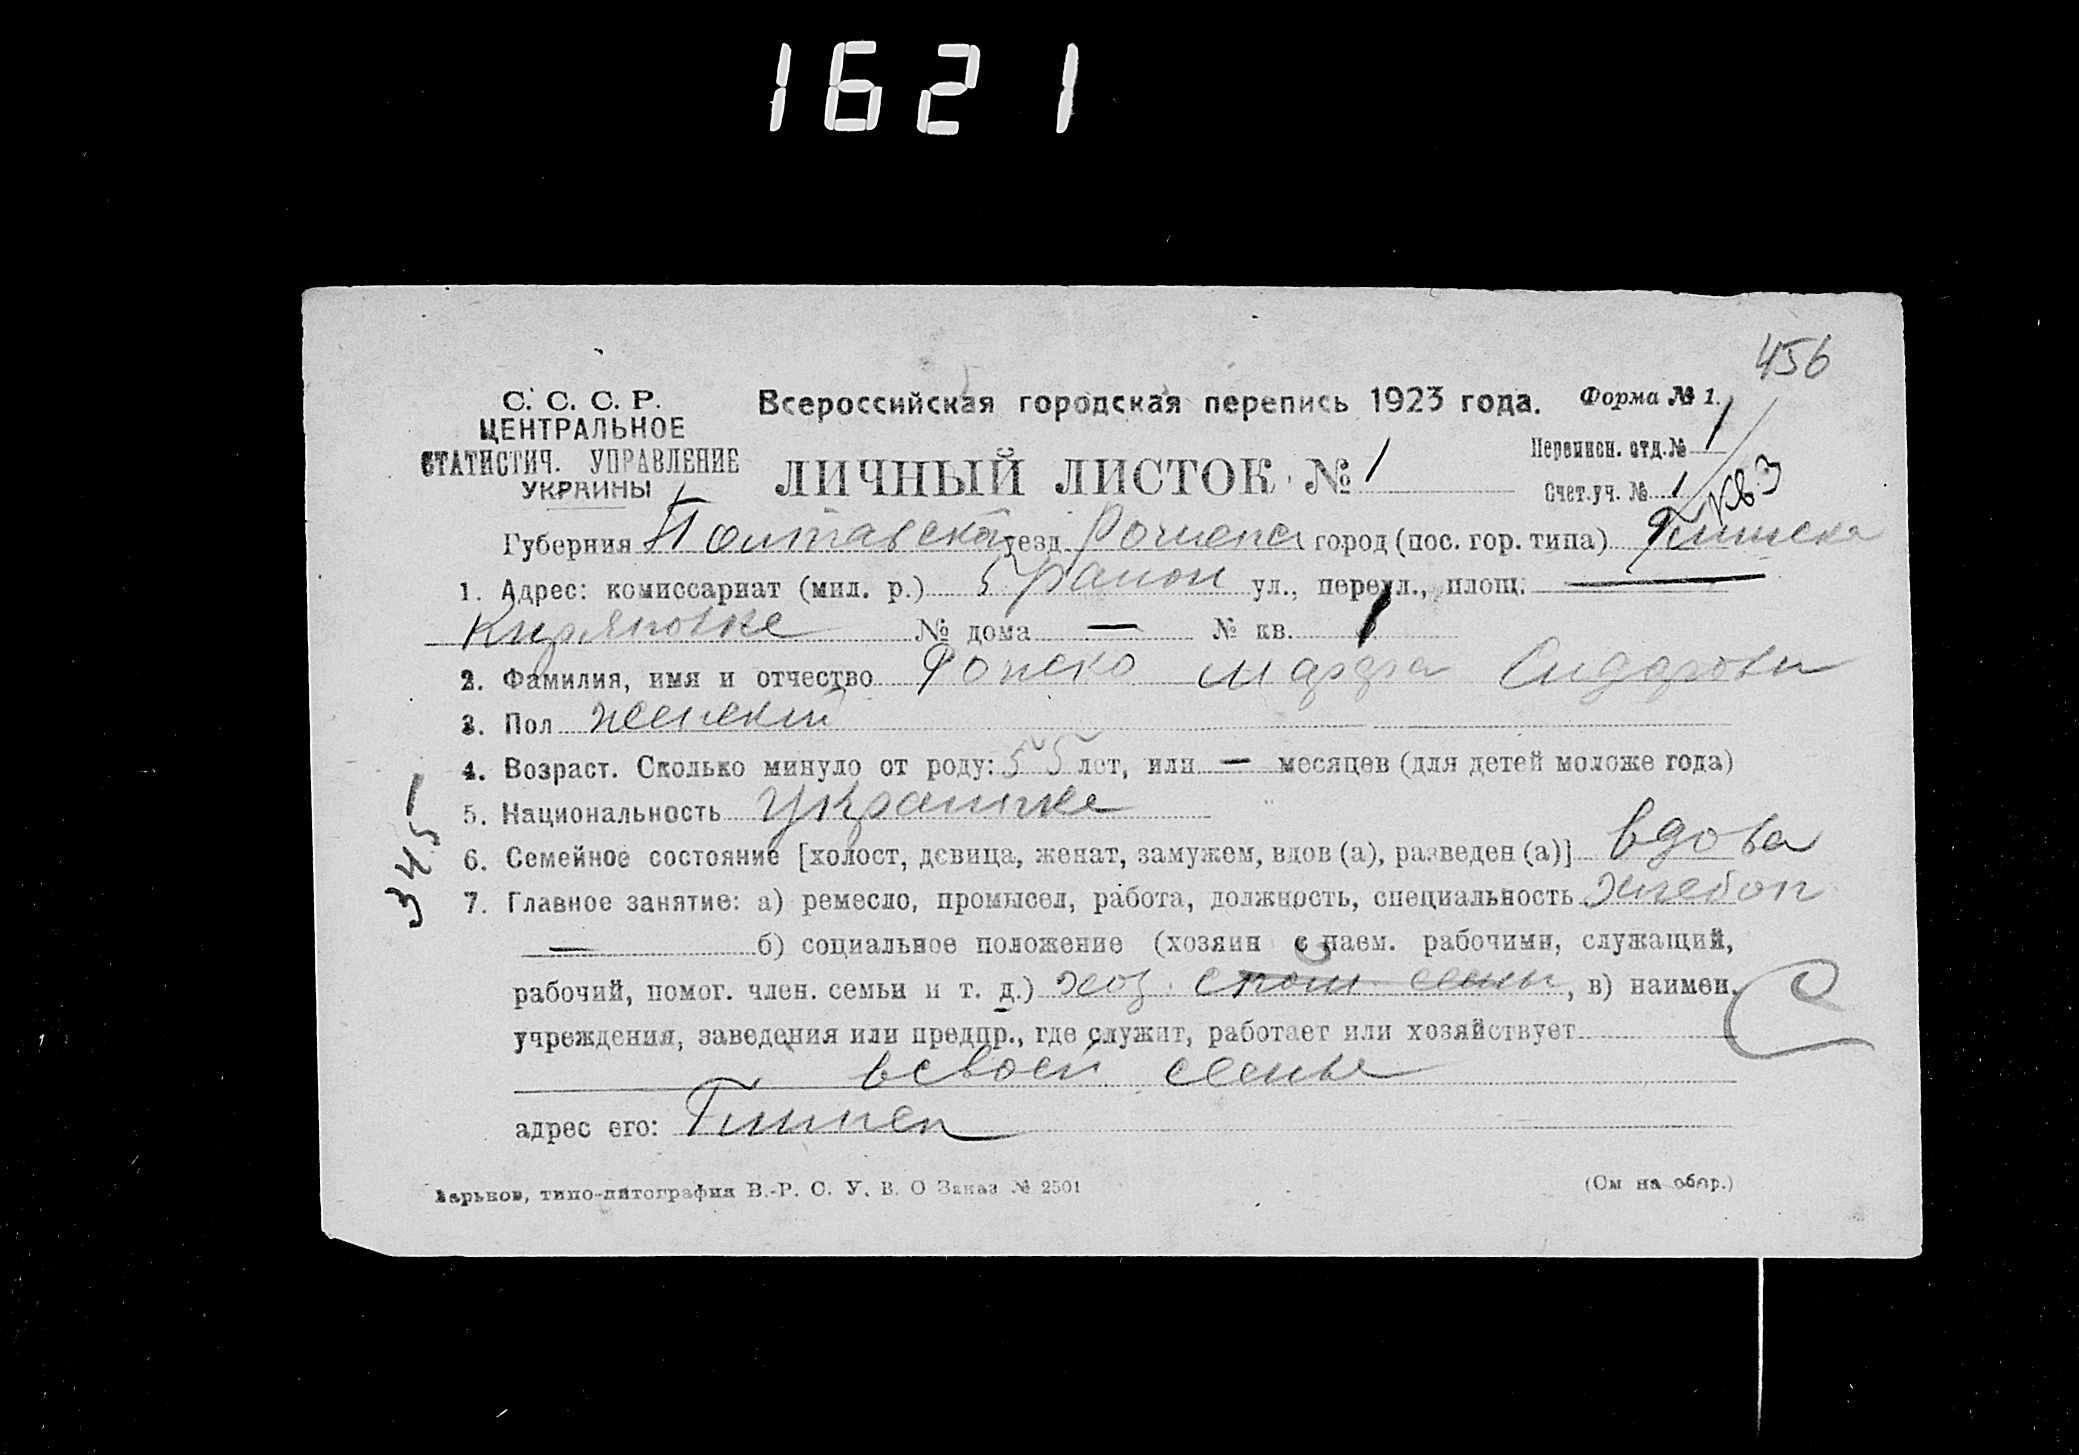 1621
456
С. С. С. Р.
ЦЕНТРАЛЬНОЕ
СТАТИСТИЧ. УПРАВЛЕНИЕ
УКРАИНЫ
Всероссийская городская перепись 1923 года.
Форма № 1.
Переписн. отд. № 1
ЛИЧНЫЙ ЛИСТОК № 1
Счет.уч. № 1
кв 3
Губерния Полтавская уезд Роменск город (пос. гор. типа) Глинска
1. Адрес: комиссариат (мил. р.) 5 район ул., переул., площ. —
№ дома — № кв. 1
2. Фамилия, имя и отчество Марфа Сидоровн
3. Пол женский
4. Возраст. Сколько минуло от роду: 55 лет, или — месяцев (для детей моложе года)
5. Национальность Украинка
6. Семейное состояние [холост, девица, женат, замужем, вдов (а), разведен (а)] вдова
7. Главное занятие: а) ремесло, промысел, работа, должность, специальность
— б) социальное положение (хозяин с наем. рабочими, служащий,
рабочий, помог. член. семьи и т. д.) хоз. с семьи, в) наимен.
учреждения, заведения или предпр., где служит, работает или хозяйствует
в своей семье
адрес его: Глинск
345 1
Харьков, типо-литография В.-Р. С. У. В. О Заказ № 2501
(См на обор.)